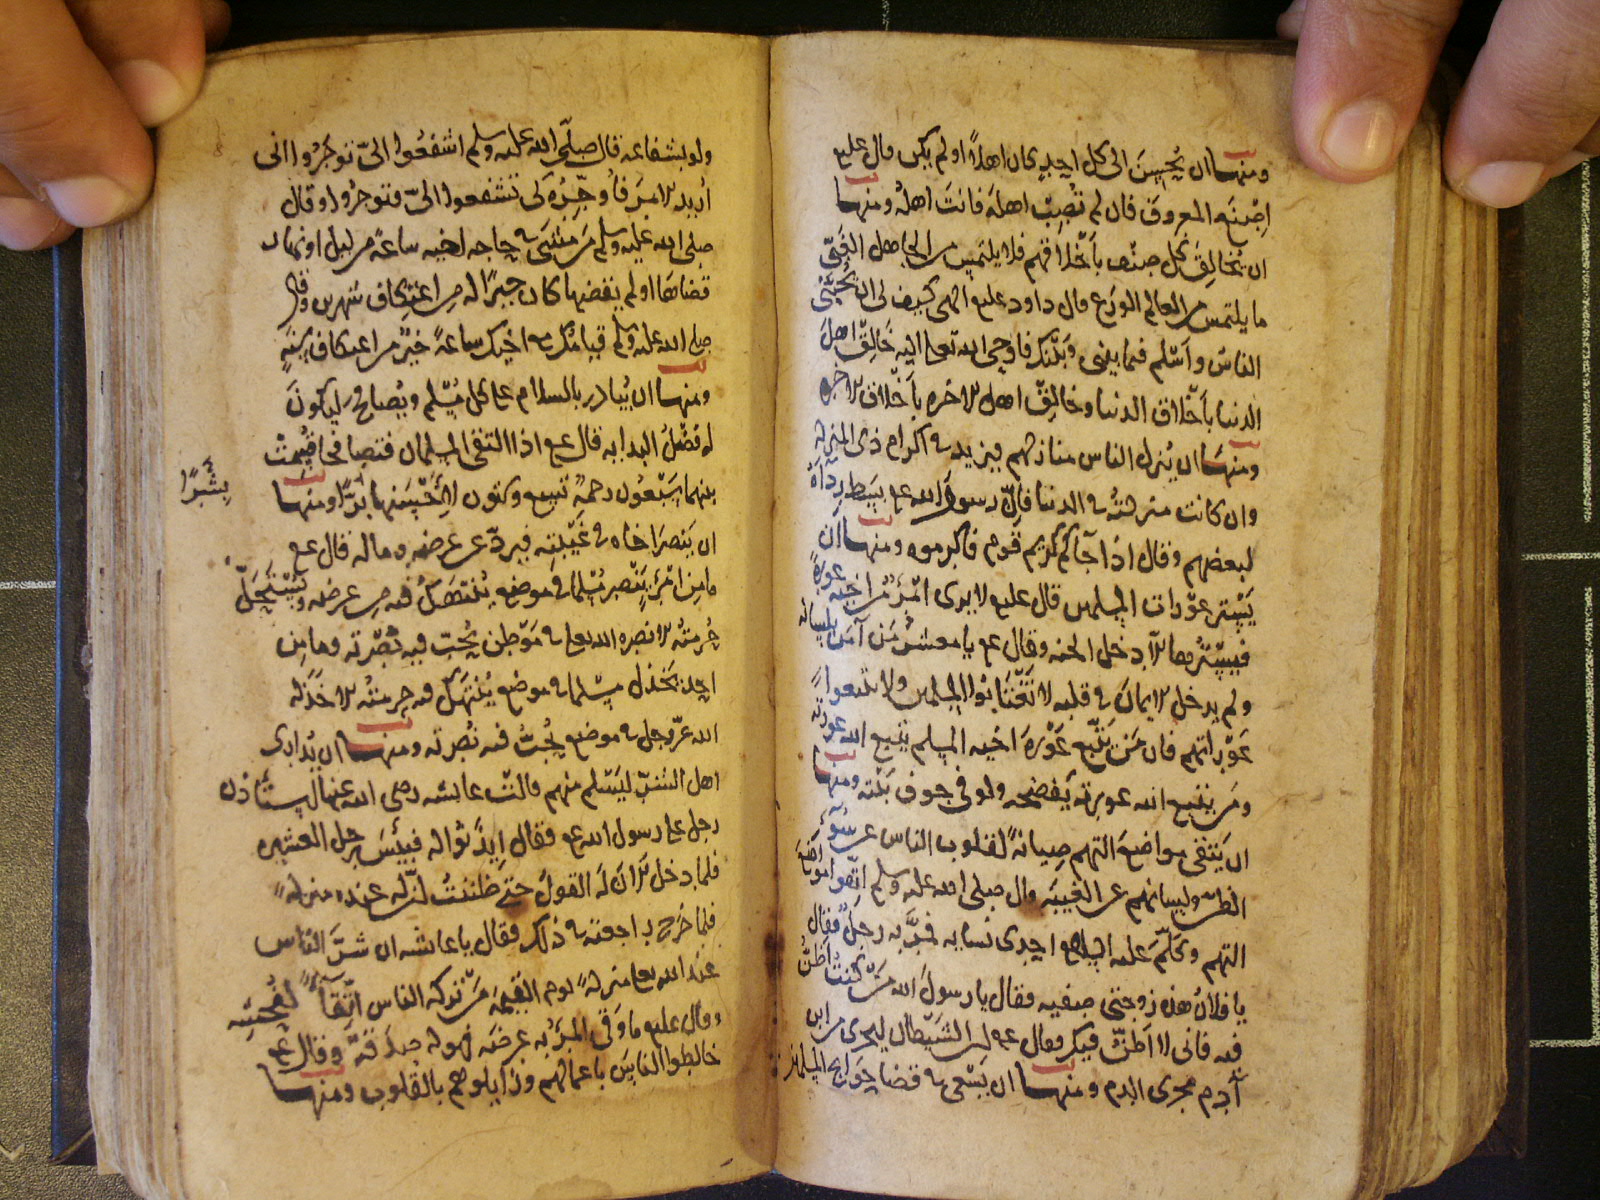 ومنها ان يُحسِنَ الى كل احدٍ كان اهلاً او لم يكن قال عليع
اِصْنَعِ المعروفَ فان لم تُصِبْ اهلَهُ فانتَ اهلُهُ ومنها
ان يُخالِقَ كل صنف بأخلاقهم فلا يلتمس من الجاهل التَقِىّ
ما يلتمس من العالم الورع قال داود عليع الهى كيف لى ان يُحِبَّنِى
الناسُ واَسْلم فيما بينى وبَيْنَك فاوحى الله تعا اليه خَالِقْ اهلَ
الدنيا باَخْلاق الدنيا وخالِقْ اهل الاخره باَخْلاق الاخره
ومنها ان يُنزل الناس منازلهم فيزيد فى اكرام ذى المنزله
وان كانت منزلته فى الدنيا فاِنّ رسول الله عم بسَط رِدَآءَهُ
لبعضهم وقال اذا جآكم كريم قوم فاكرموه ومنها ان
يَسْتر عَوْرات المسلمين قال عليع لا يرى امْرَؤٌ من اخيه عورةً
فيَسْتُرُها الاّ دخل الجنه وقال عم يا معشرُ مَن آمَن بلسانه
ولم يدخل الايمانُ فى قلبه لا تَغْتَابُوا المسلمين ولا تتبعوا
عَوْراتهم فان مَن يَتّبع عَوْرةَ اخيه المسلم يتبع الله عورته
ومَن يتبع الله عورته يَفضحه ولو فى جوف بَيْته ومنها
ان يَتّقى مواضعَ التهم صِيانةً لقلوب الناس عن سُوء
الظنّ ولسانهم عن الغيبه قال صلى الله عليه وسلم اتّقوا مواضع
التهم وكَلّمَ عليه السلام احدى نسايه فمَرّ به رجلٌ فقال
يا فلان هذه زوجتى صفيه فقال يا رسولَ الله مَن كنتُ اَظنُّ
فيه فانى لا اَظنُّ فيك فقال عم ان الشَيْطان ليجرى من ابن
آدم مجرى الدم ومنها ان يَسْعى فى قضا حوايج المسلمين
ولو بشفاعه قال صلّى الله عليه وسلم اشفعُوا الىّ توجرُوا انى
اُريد الامرَ فأوخّرُه كى تشفعوا الىّ فتوجرُوا وقال
صلى الله عليه وسلم مَن مَشَى فى حاجه اخيه ساعةً من ليل او نهار
قضاهَا او لم يقضها كان خيرًا له من اعتكاف شهرين وقال
صلى الله عليه وسلم قيامُك مع اخيك ساعةً خيرٌ من اعتكاف سَنَةٍ
ومنها ان يُبادر بالسلام على كل مُسْلم ويُصافحَ ليكونَ
له فَضْلُ البدايه قال عم اذا التقى المسلمان فتصافحا قُسِمتْ
بينهما سَبْعُون رحمةً تسع وستون لاَحْسَنهما بِرًّا ومنها
بِشْرًا
ان يَنصرَ اخاه فى غَيْبَتِه فيردّ عن عرضه وماله قال عم
ما مِن امْرئٍ يَنْصر مُسْلما فى موضع يُنْتَهَكُ فيه من عرضه ويُسْتَحَلّ
حُرمتُه الا نصره الله تعا فى مَوْطن يُحبّ فيه نُصْرته وما من
احدٍ يَخْذل مسْلما فى موضع يُنْتهَكُ فيه حرمتُه الا خَذَله
الله عزّ وجل فى موضع يُحبّ فيه نُصْرته ومنها ان يُدارى
اهل الشرّ ليَسْلم منهم قالت عايشه رضى الله عنها استاذن
رجل على رسول الله عم فقال اِيذَنُوا له فبِئْسَ رجل العشيره
فلما دخل اَلاَنَ لَهُ القولَ حتى ظننتُ اَنّ له عنده منزلهً
فلما خرج راجعته فى ذلك فقال يا عايشه ان شرَّ الناس
عند الله تعا منزلهً يوم القيمه مَن تركه الناس اتّقآً لفُحشِه
وقال عليع ما وَقى المرْءُ به عرضَه فهو له صدقَةٌ وقال عم
خالطوا الناسَ باعمالهم وزايلوهم بالقلوب ومنها